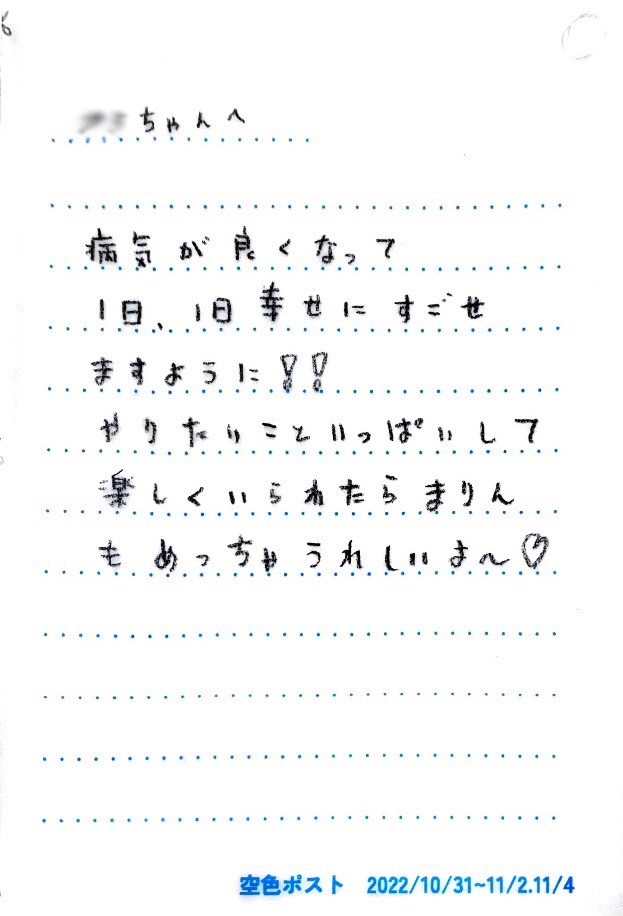 ちゃんへ
病気が良くなって
1日、1日幸せにすごせ
ますように!!
やりたいこといっぱいして
楽しくいられたらまりん
もめっちゃうれしいよ〜♡
空色ポスト 2022/10/31~11/2.11/4